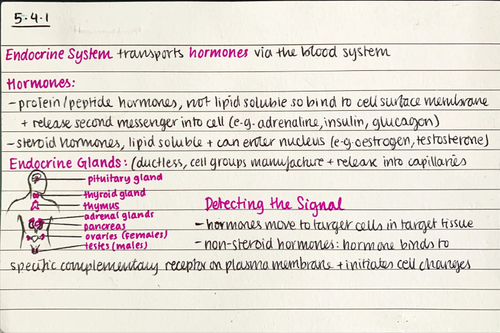 5.4.1
Endocrine System transports hormones via the blood system
Hormones:
- protein/peptide hormones, not lipid soluble so bind to cell surface membrane
+ release second messenger into cell (e.g. adrenaline, insulin, glucagon)
- steroid hormones, lipid soluble + can enter nucleus (e.g. oestrogen, testosterone)
Endocrine Glands: (ductless, cell groups manufacture + release into capillaries
pituitary gland
thyroid gland
thymus
adrenal glands
pancreas
ovaries (females)
testes (males)
Detecting the Signal
- hormones move to target cells in target tissue
- non-steroid hormones: hormone binds to
specific complementary receptor on plasma membrane + initiates cell changes